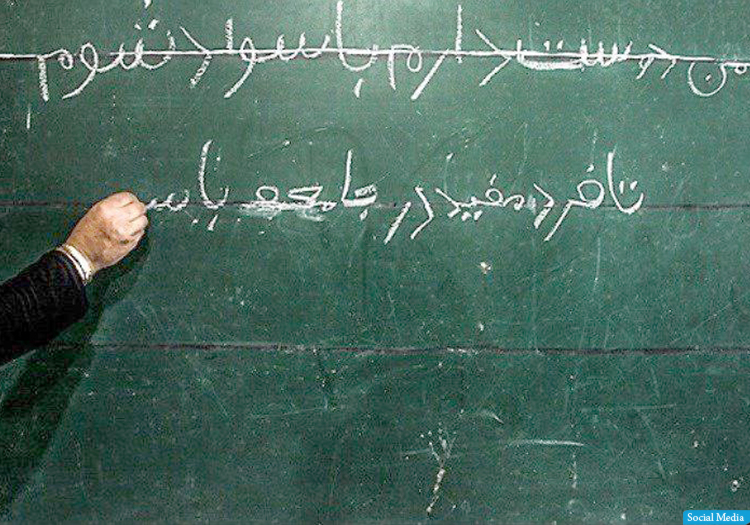 من دوست دارم باسواد شوم
تا فرد مفید در جامعه باس
Social Media